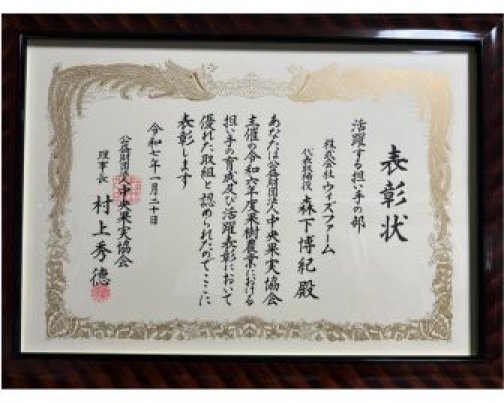 表彰状
活躍する担い手の部
株式会社ウィズファーム
代表取締役 森下博紀 殿
あなたは公益財団法人中央果実協会
主催の令和六年度果樹農業における
担い手の育成及び活躍表彰において
優れた取組と認められたのでここに
表彰します
令和七年一月二十日
公益財団法人中央果実協会
理事長 村上秀德